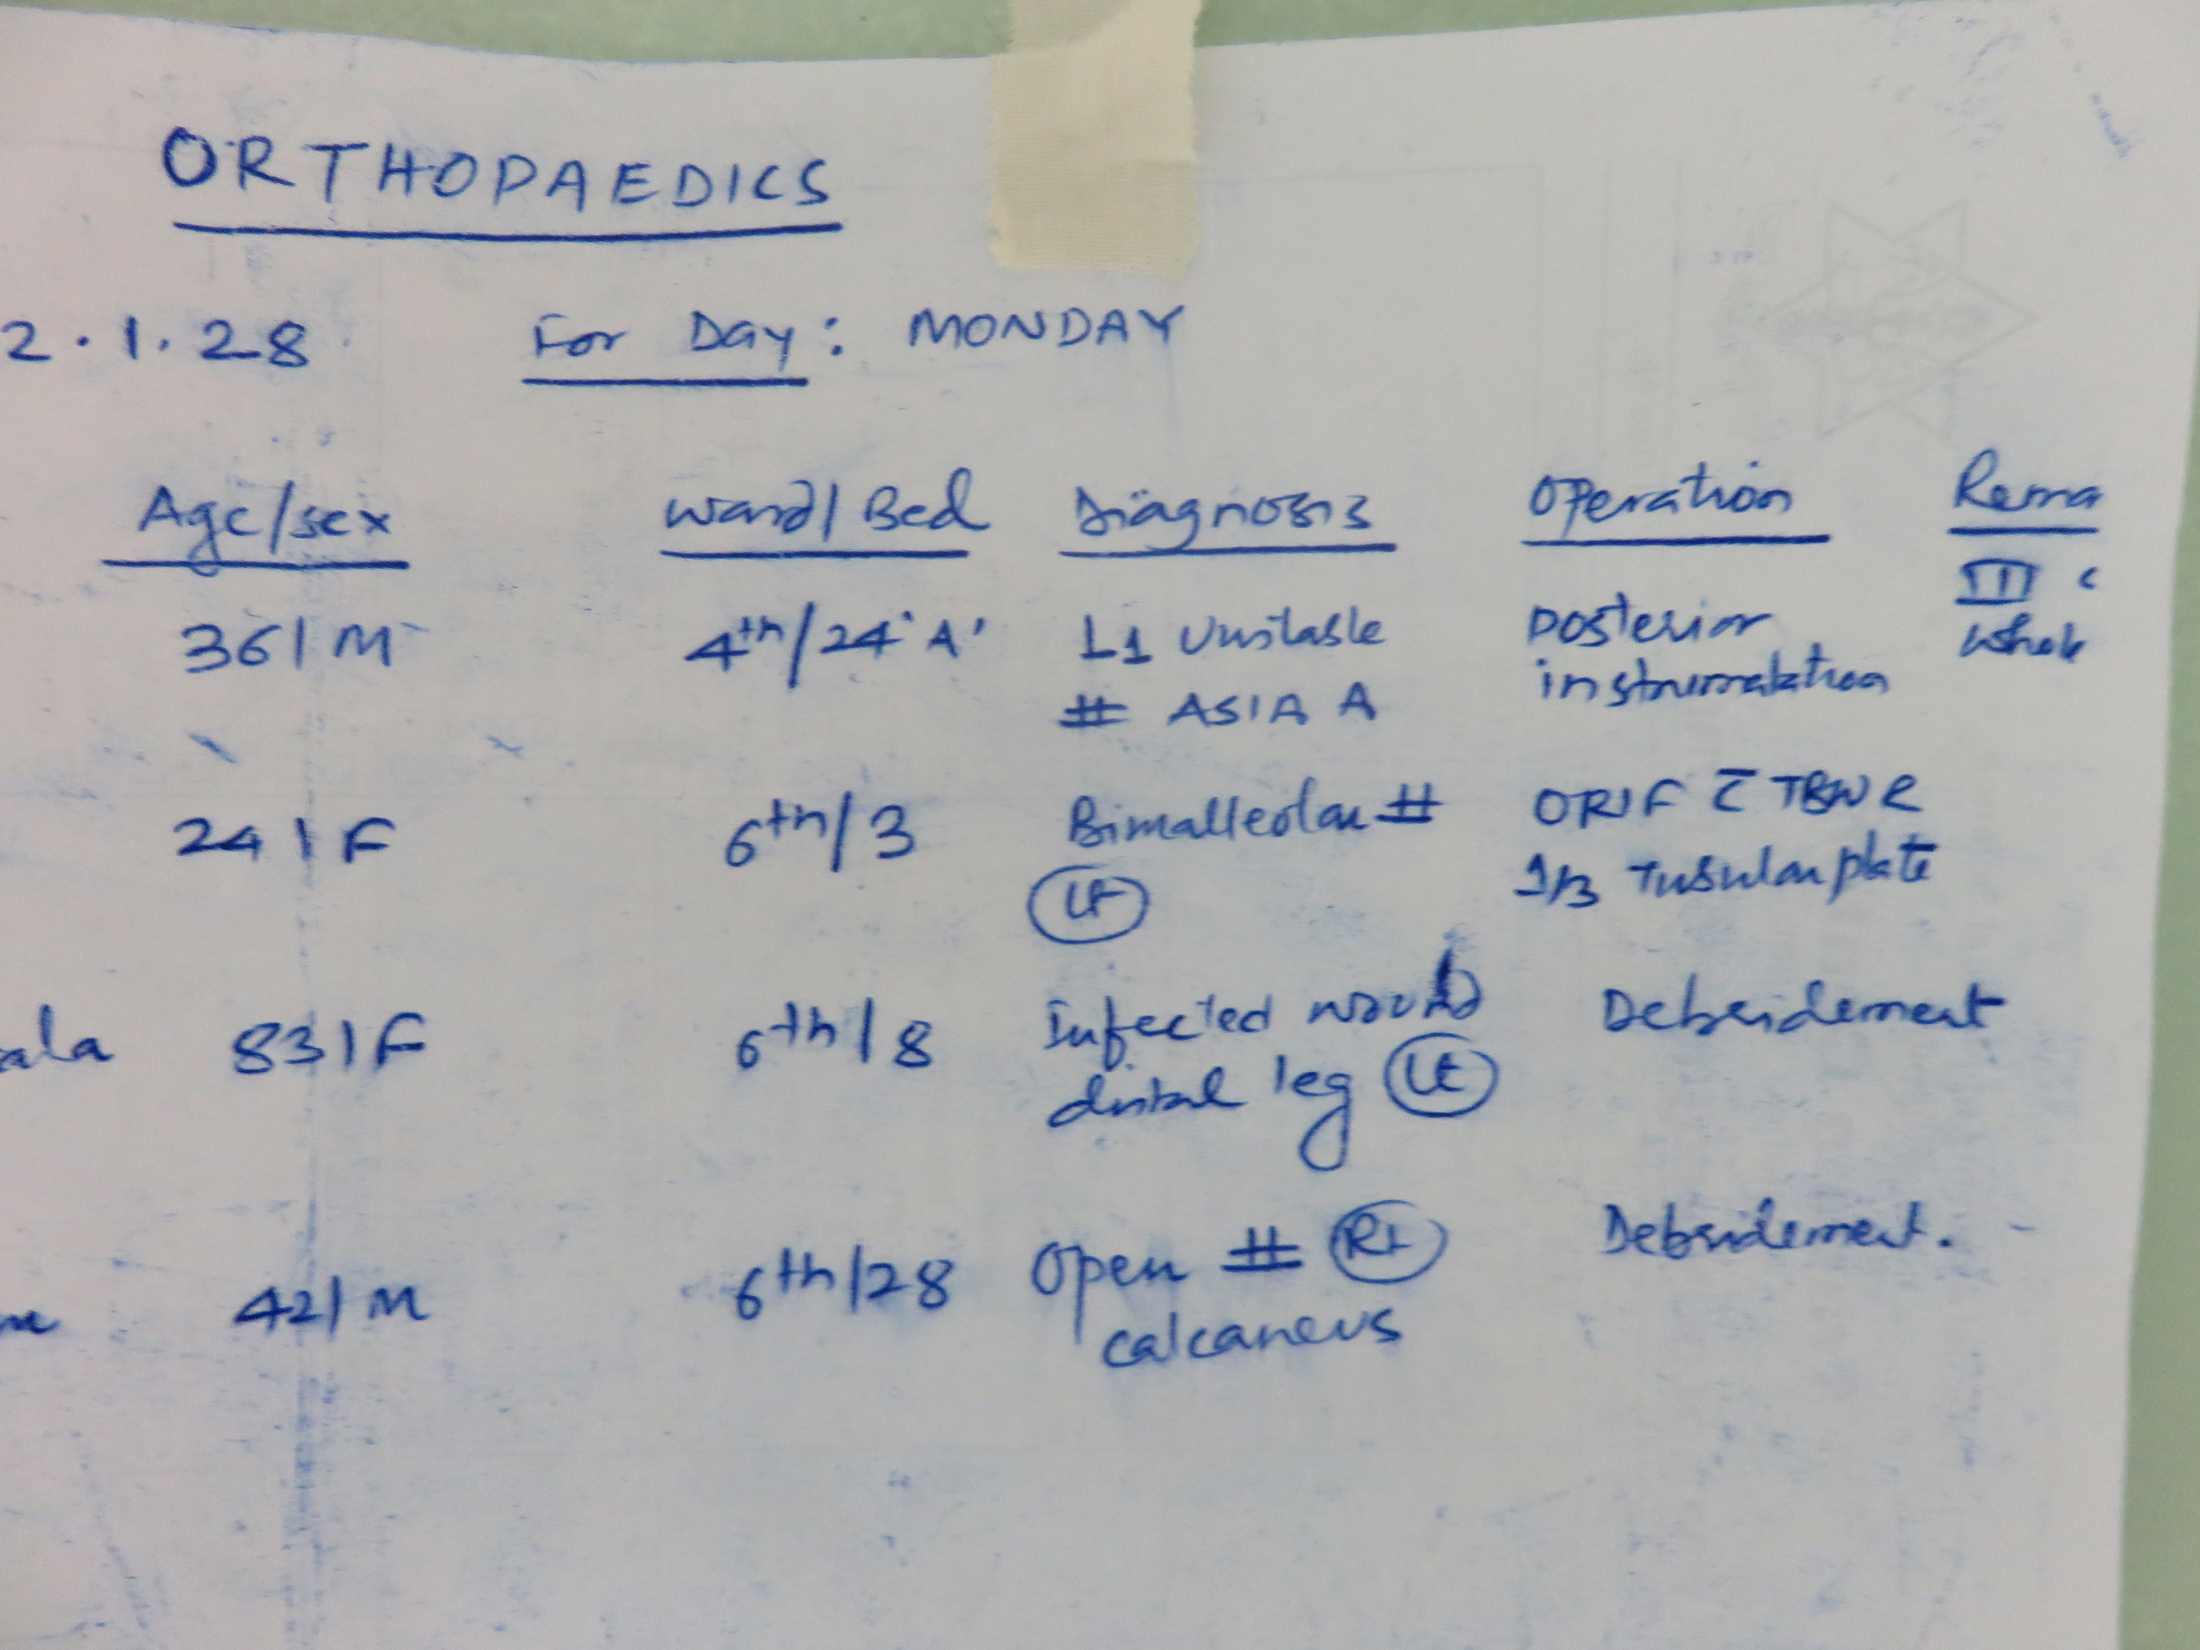 ORTHOPAEDICS
2.1.28 For Day: MONDAY
Age/sex Ward/Bed Diagnosis Operation Rema
36/M 4th/24'A' L1 Unstable Posterior III c
# ASIA A instrumentation
24/F 6th/3 Bimalleolar # ORIF c̄ TBW &
Lt 1/3 Tubular plate
ala 83/F 6th/8 Infected wound Debridement
distal leg Lt
42/M 6th/28 Open # Rt Debridement.
calcaneus